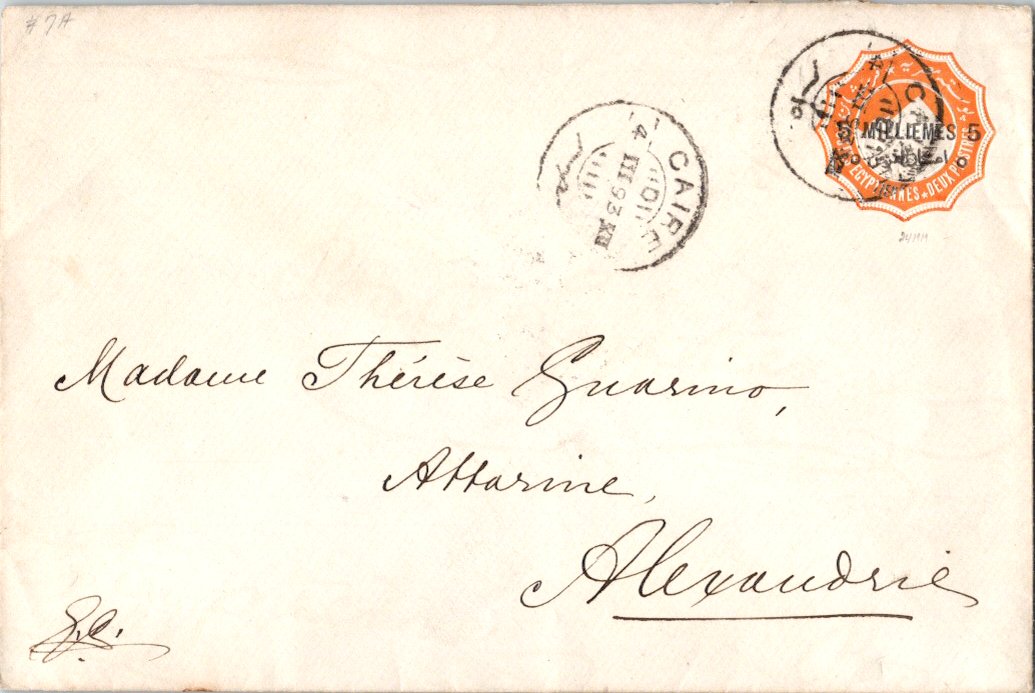 #7A
5 MILLIEMES 5
EGYPTIENNES DEUX PIASTRES
CAIRE
4 III 93 XII
24MM
Madame Thérèse Guarino,
Attarine,
Alexandrie